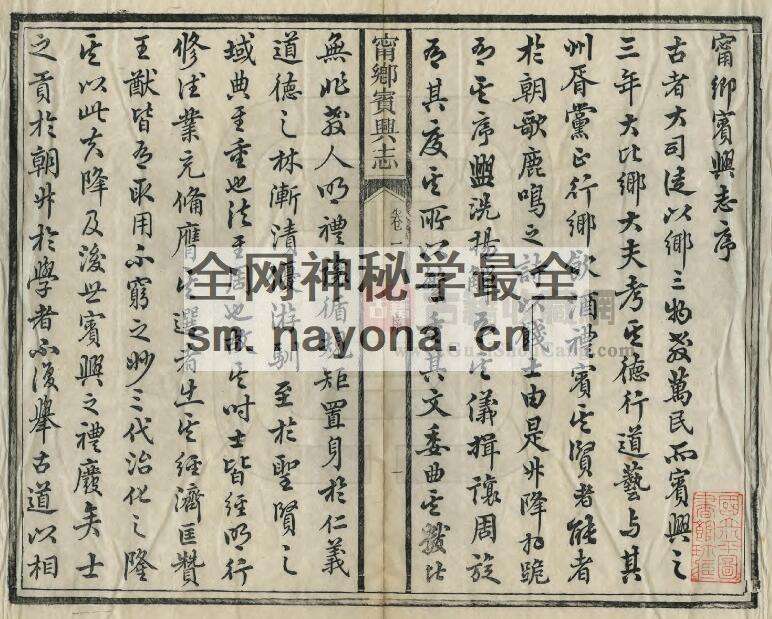 甯鄉賓興志序
古者大司徒以鄉三物教萬民而賓興之
三年大比鄉大夫考其德行道藝与其
州屬黨正行鄉飲酒禮賓其賢者能者
於朝歌鹿鳴之詩以餞士由是升降拜跪
有其序盥洗揚觶有其儀揖讓周旋
有其度其所以
其文委曲其
甯鄉賓興志
卷一
一
無非教人明禮
循規矩置身於仁義
道德之林漸漬優游馴至於聖賢之
域典至重也法至
也故其時士皆經明行
修法業充備膺其選者出其經濟匡贊
王猷皆有取用不窮之妙三代治化之隆
其以此夫降及後世賓興之禮廢矣士
之貢於朝升於學者不復舉古道以相
全网神秘学最全
sm.nayona.cn